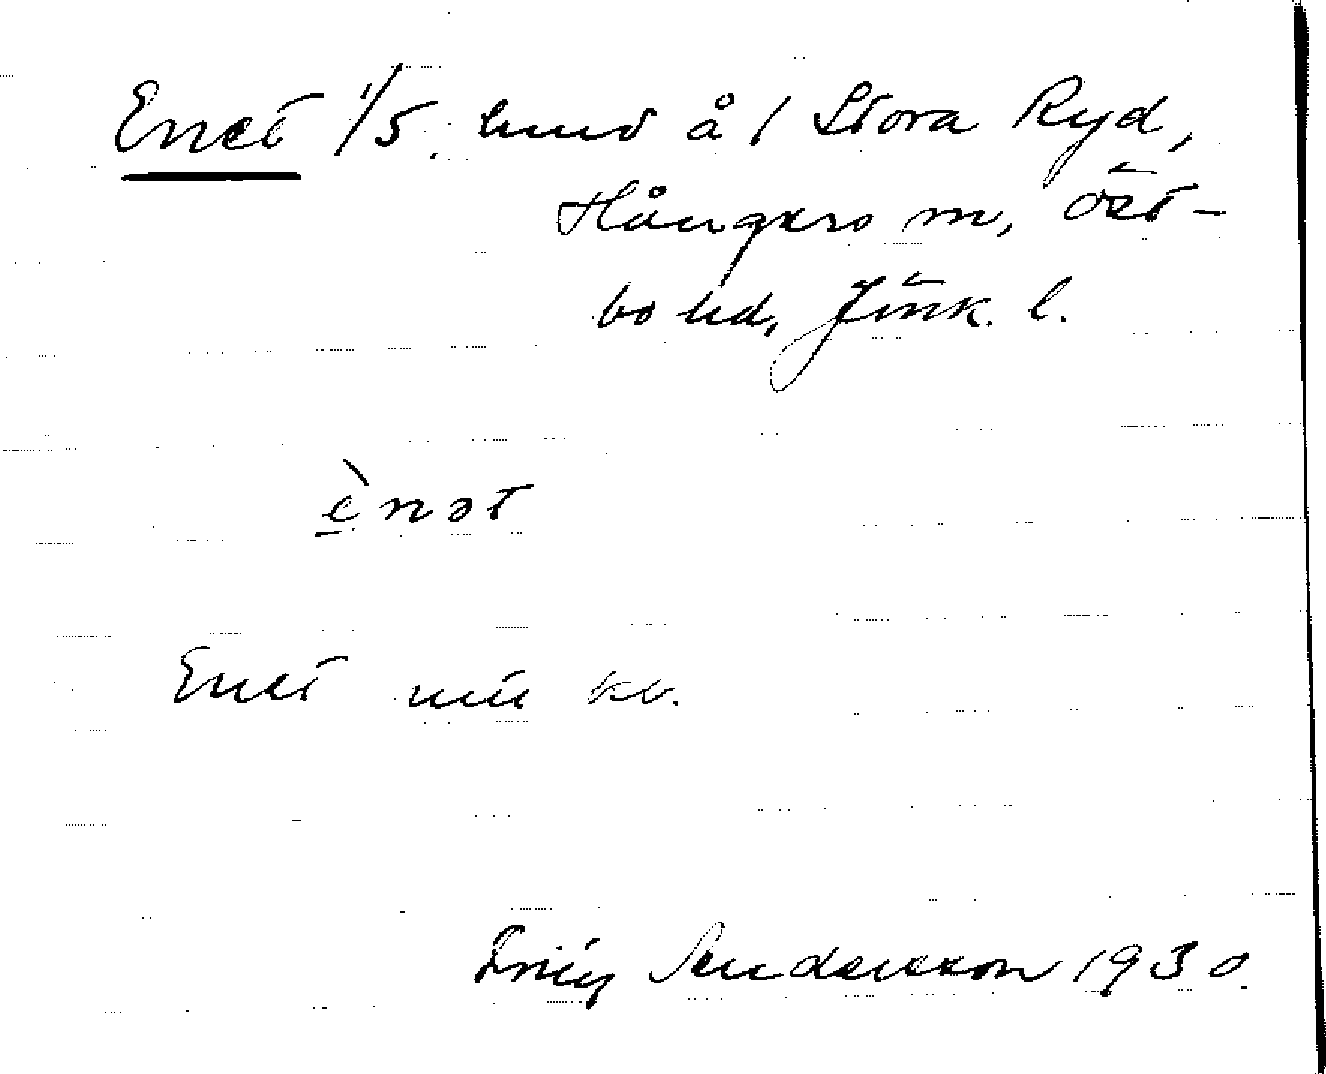 Enet 1/5. hmd å / Stora Ryd,
Hångers sn, Öst-
bo hd, Jönk. l.
ènət
Enet kv.
Andersson 1930.